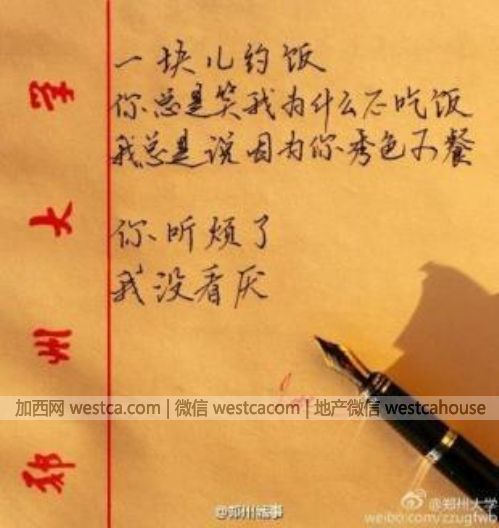 一块儿约饭
你总是笑我为什么不吃饭
我总是说因为你秀色可餐
你听烦了
我没看厌
郑州大学
加西网 westca.com | 微信 westcacom | 地产微信 westcahouse
@郑州疏事
@郑州大学
weibo.com/zzugfwb